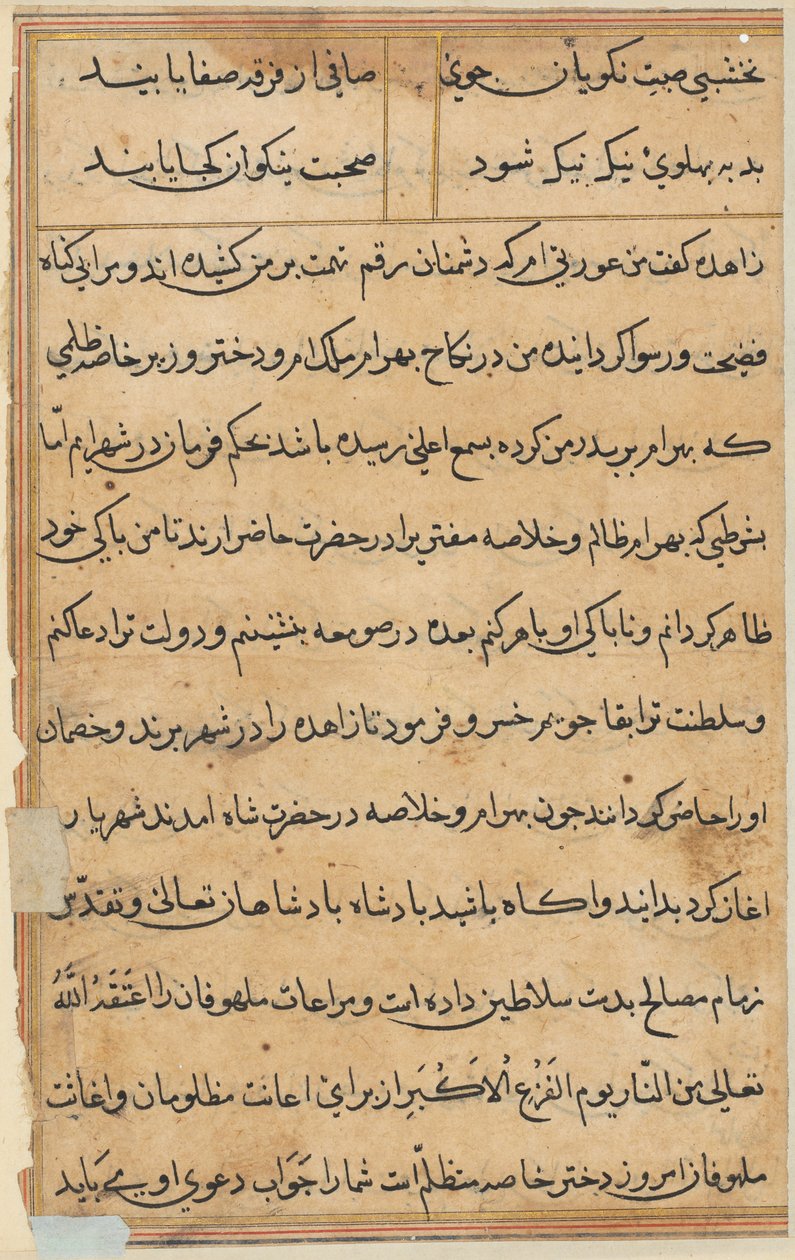 نخشبي صحبتِ نكويان جوي صافي از فرقد صفا يابيند
بد به پهلوئ نيک نيک شود صحبت نيكوان كجا يابند
زاهده كفت من عورتي ام كه دشمنان رقم تهمت بر من كشيده اند و مرا بي كناه
فضيحت و رسوا كردانيده من در نكاح بهرام ملک ام و دختر وزير خاصه ظلمي
كه بهرام بر پدر من كرده بسمع اعلي رسيده باشد بحكم فرمان در شهر ايم امّا
بشرطي كه بهرام ظالم و خلاصه مفتري را در حضرت حاضر ارند تا من پاكي خود
ظاهر كردانم و ناپاكي او باهر كنم بعده در صومعه بنشينم و دولت ترا دعا كنم
و سلطنت ترا بقا جويم خسرو فرمود تا زاهده را در شهر برند و خصمان
او را حاضر كردانند جون بهرام و خلاصه در حضرت شاه امدند شهريار
اغاز كرد بدانيد و اكاه باشيد بادشاه بادشاهان تعالى و تقدّس
زمام مصالح بدست سلاطين داده است و مراعات ملهوفان را اعتقد اللّٰهُ
تعالى من النّار يوم الفَزَعِ الاَكْبَرِ از براي اعانت مظلومان و اغاثت
ملهوفان امروز دختر خاصه متظلّم است شما را جَوَاب دعوي او مي بَايد